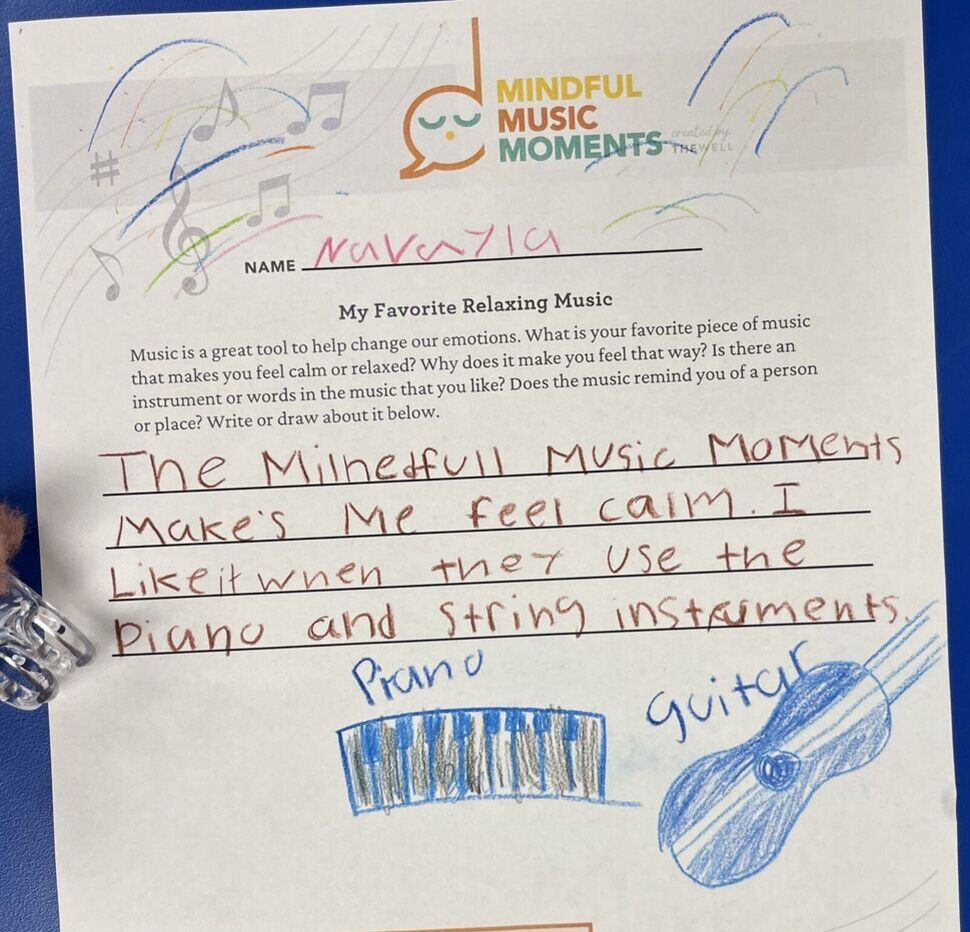 MINDFUL
MUSIC
MOMENTS
created by
THE WELL
NAME Navayla
My Favorite Relaxing Music
Music is a great tool to help change our emotions. What is your favorite piece of music
that makes you feel calm or relaxed? Why does it make you feel that way? Is there an
instrument or words in the music that you like? Does the music remind you of a person
or place? Write or draw about it below.
The Milnedfull Music Moments
Make's Me feel calm. I
Like it when they use the
Piano and string instruments.
Piano
guitar